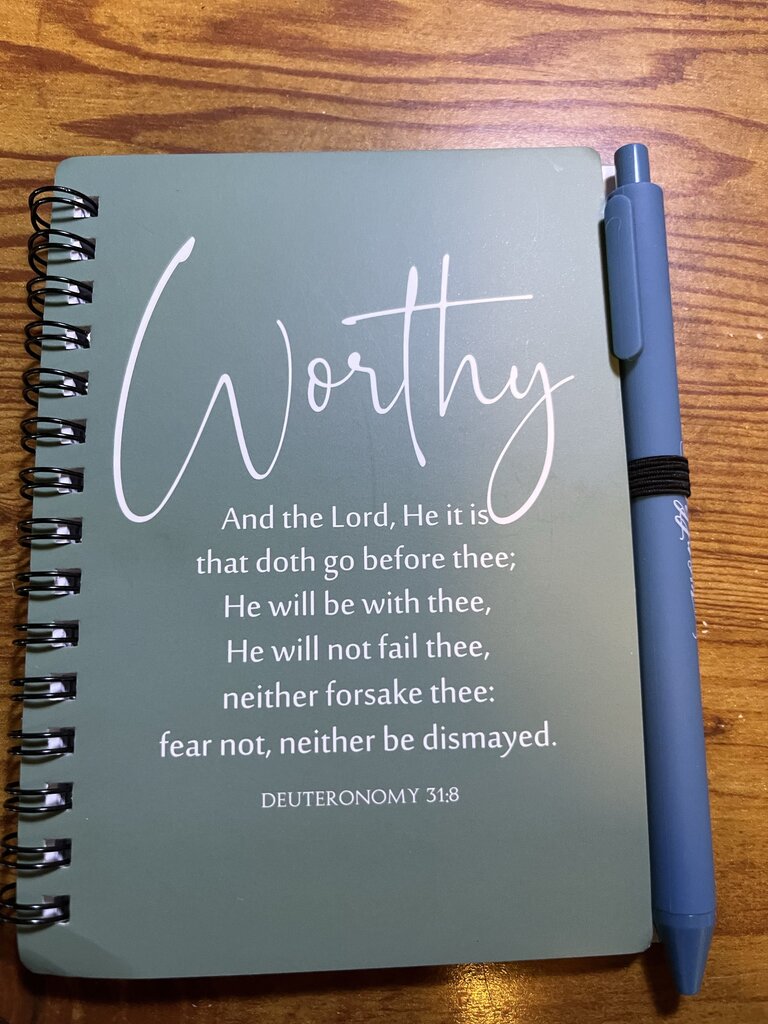 Worthy
And the Lord, He it is
that doth go before thee;
He will be with thee,
He will not fail thee,
neither forsake thee:
fear not, neither be dismayed.
DEUTERONOMY 31:8